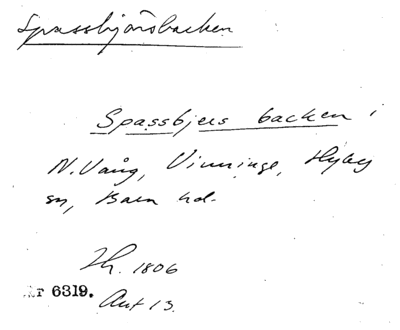 Spassbjörsbacken
Spassbjers backen i
N. Vång, Vinninge, Hyby
sn, Bara hd.
Th. 1806
Ar 6319.
Akt 13.